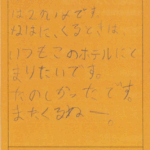 は2かいめです。
なはに、くるときは、
いつもこのホテルにと
まりたいです。
たのしかったです。
またくるねー